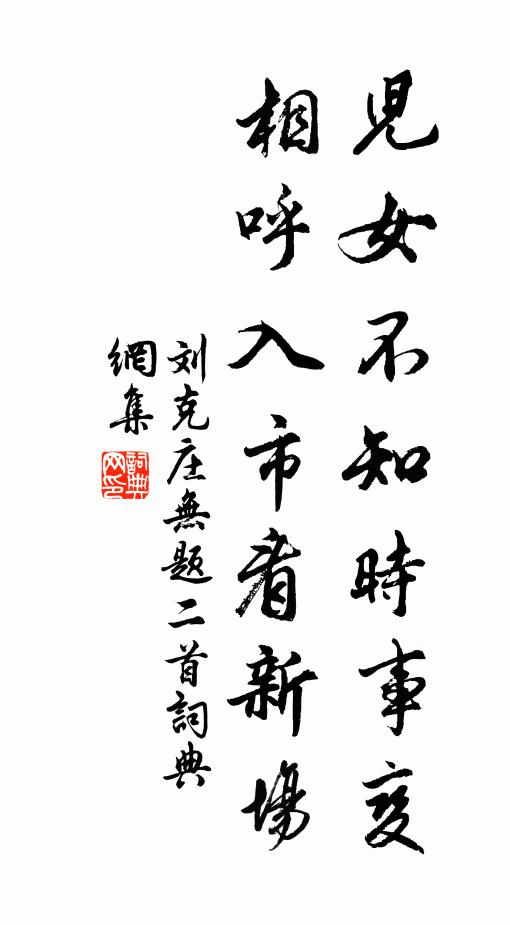 兒女不知時事變
相呼入市看新場
刘克庄無题二首詞典
網集
詞典網印